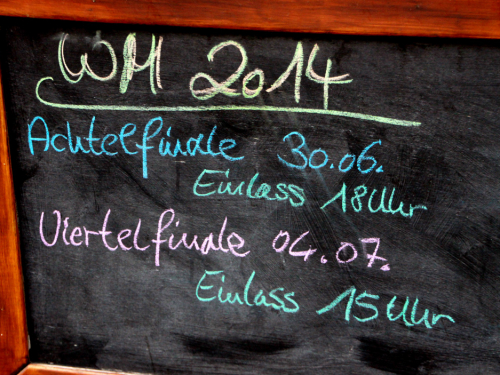 WM 2014
Achtelfinale 30.06.
Einlass 18 Uhr
Viertelfinale 04.07.
Einlass 15 Uhr